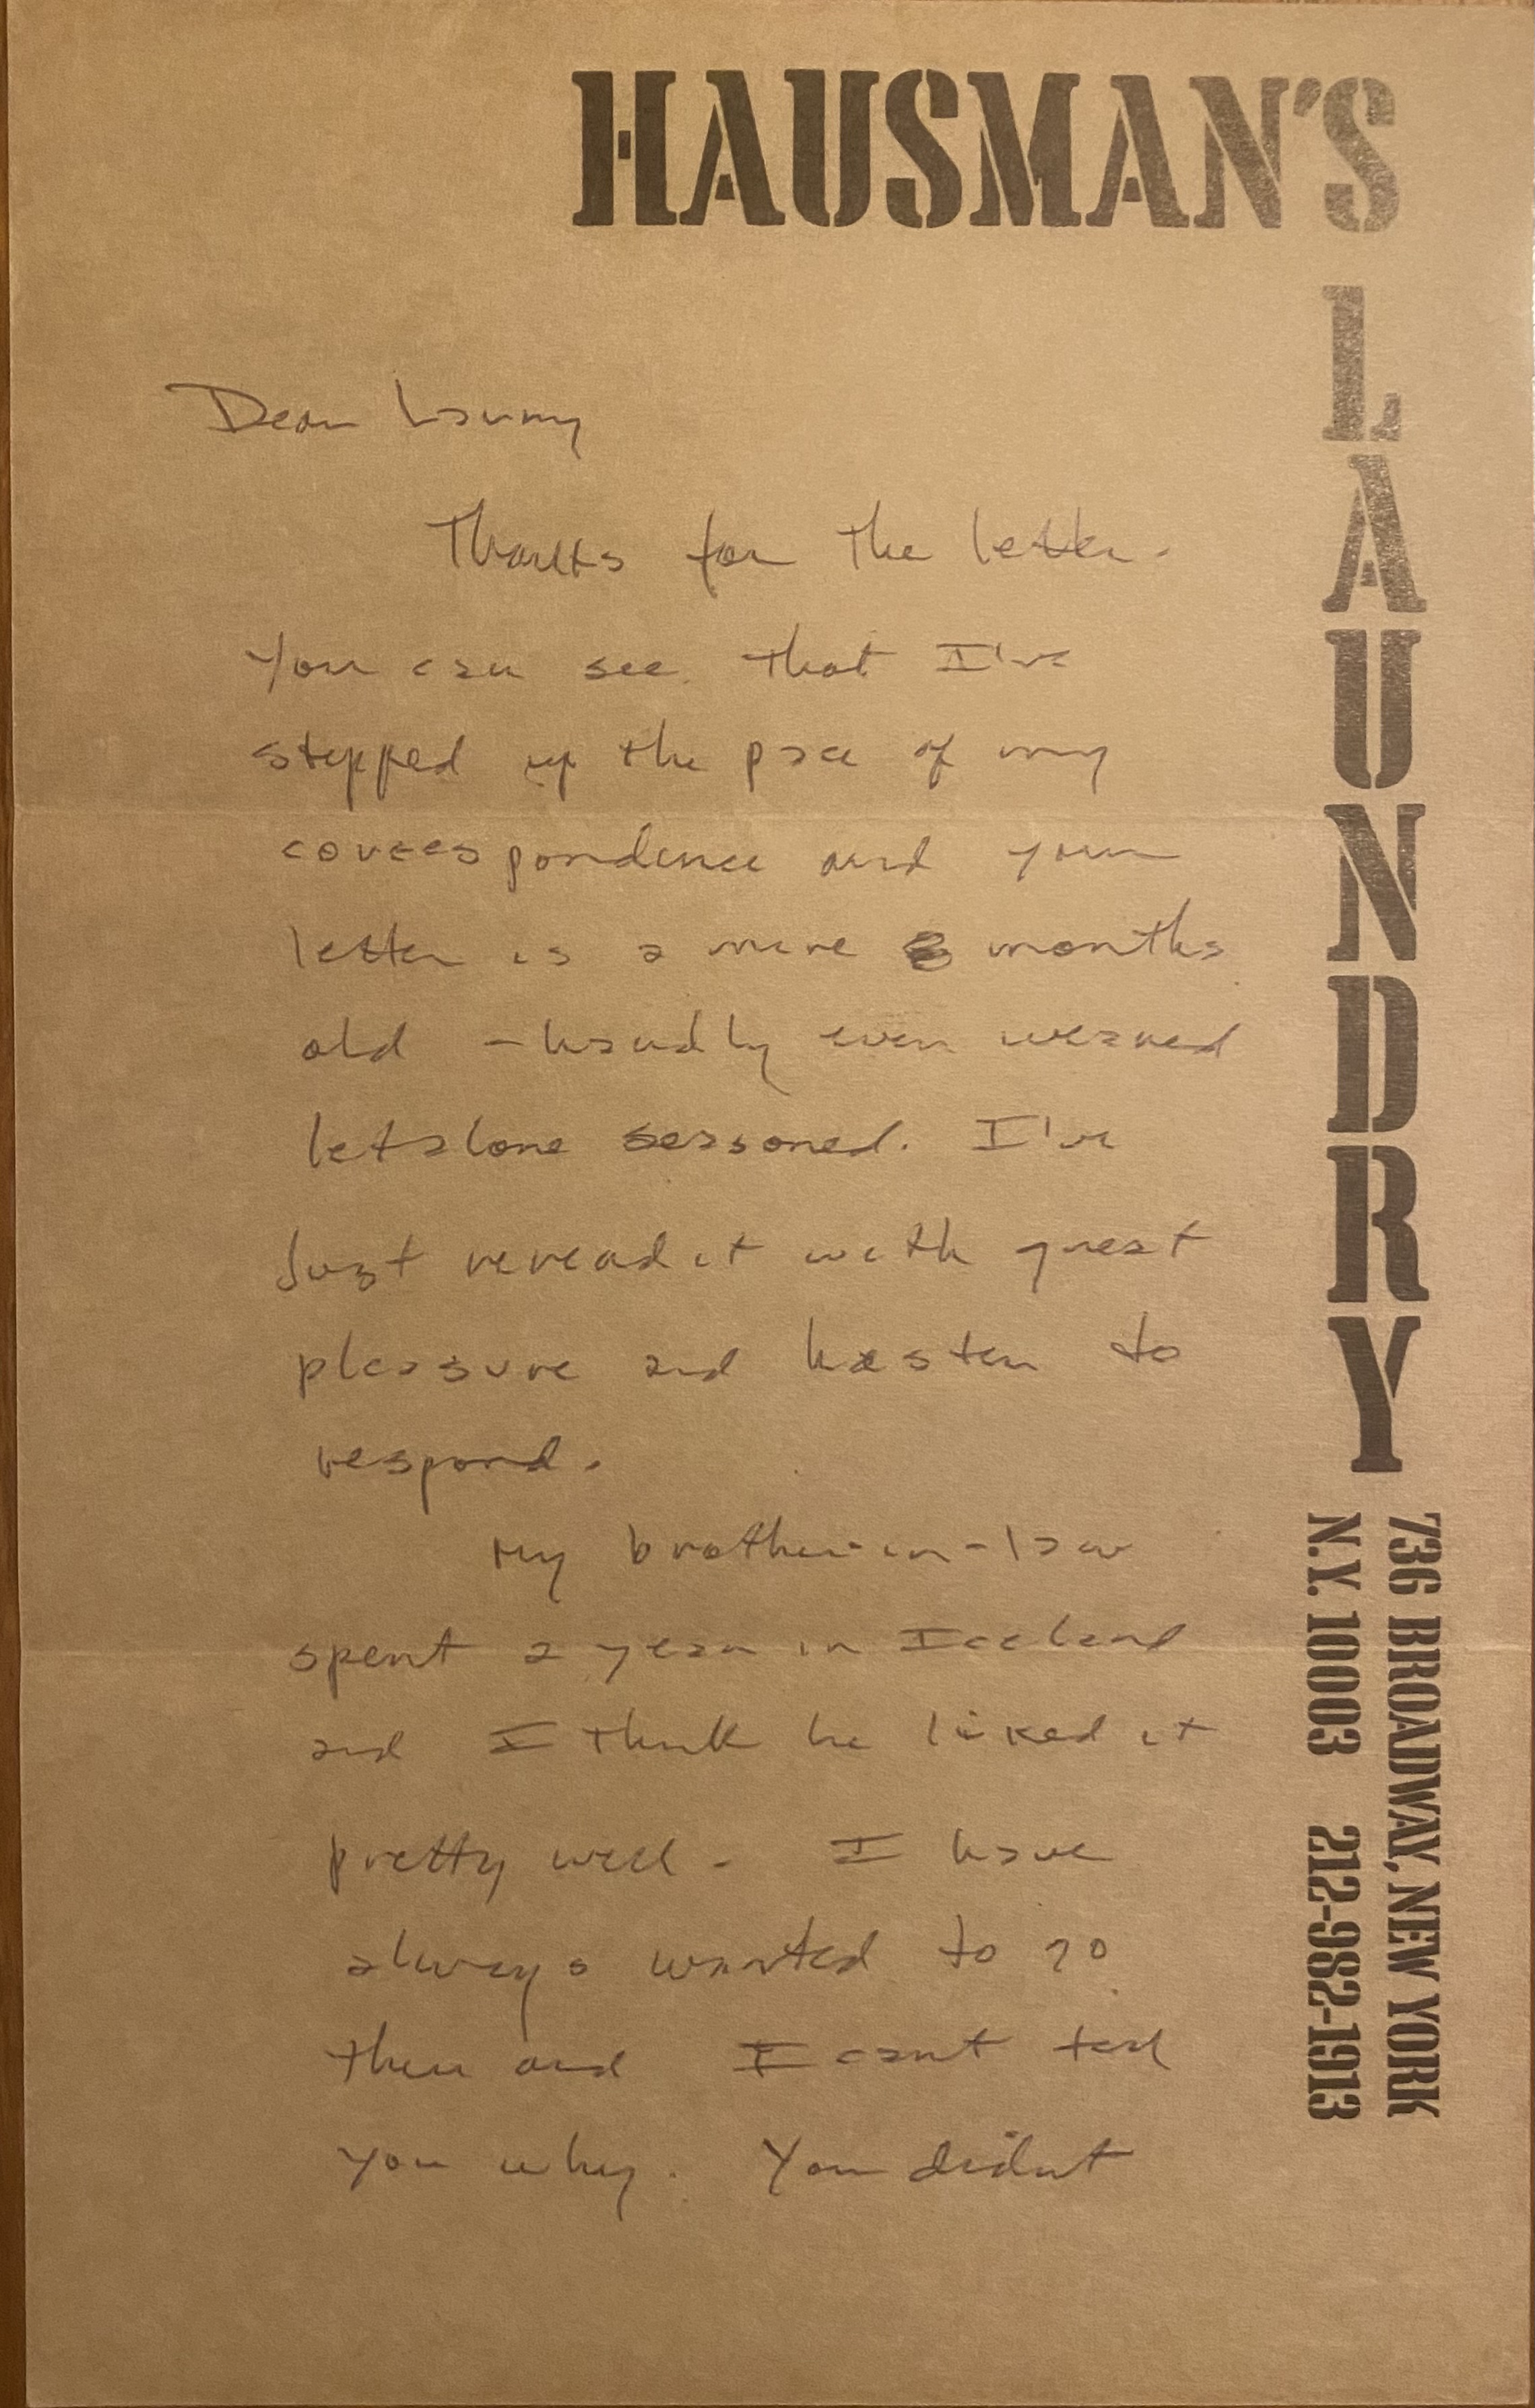 HAUSMAN'S
LAUNDRY
736 BROADWAY, NEW YORK
N.Y. 10003 212-982-1913
Dear
Thanks for the letter.
You can see that I've
stepped up the pace of my
correspondence and your
letter is a mere 8 months
old - hardly even weaned
let alone seasoned. I've
Just reread it with great
pleasure and hasten to
respond.
My brother-in-law
spent a year in Iceland
and I think he liked it
pretty well - I have
always wanted to go
there and I cant tell
you why. You didnt